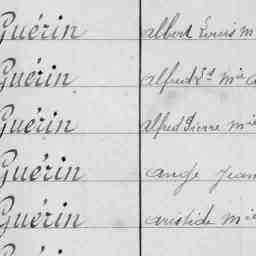 Guérin albert Louis m
Guérin alfred L.d mie a
Guérin alfred Pierre mie
Guérin ange Jean
Guérin aristide mie